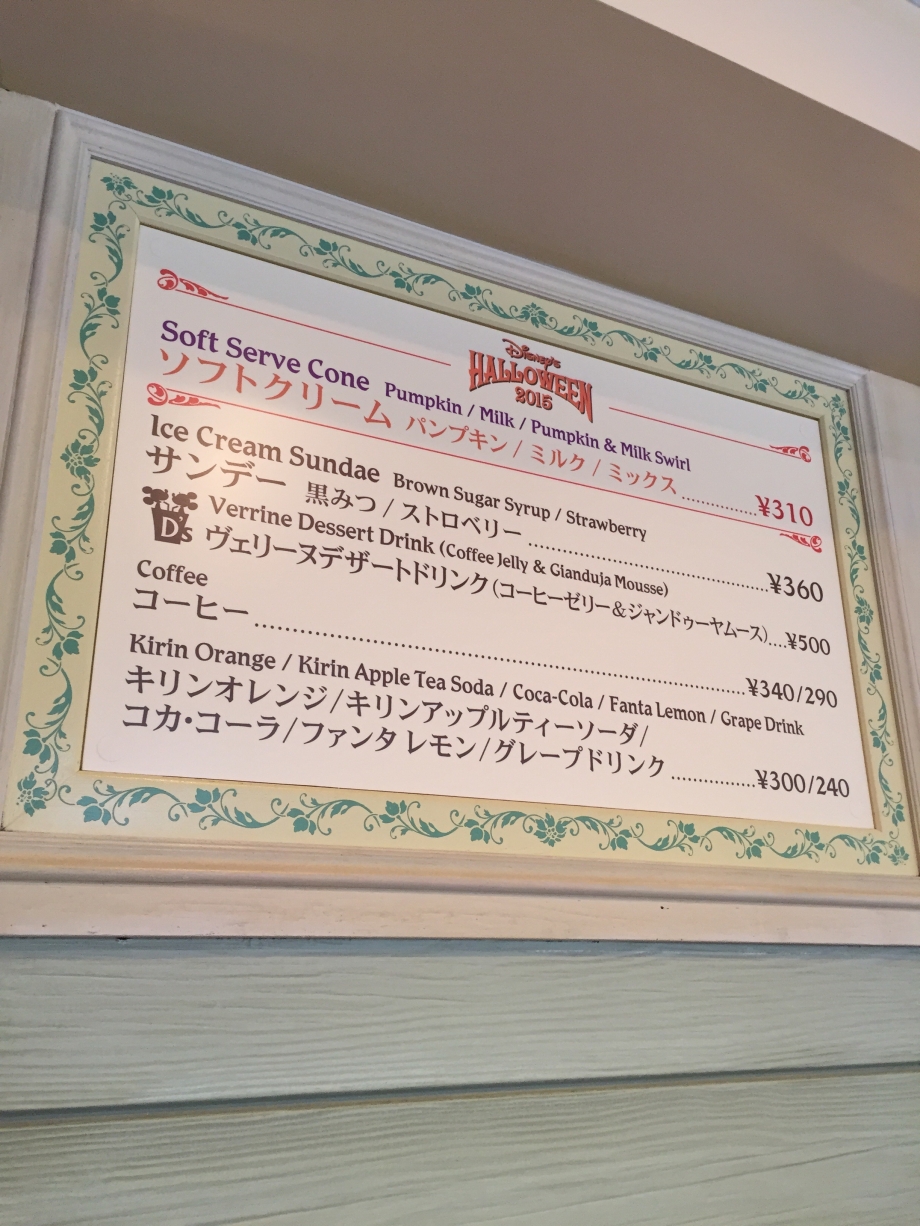 Disney's
HALLOWEEN
2015
Soft Serve Cone Pumpkin / Milk / Pumpkin & Milk Swirl
ソフトクリーム パンプキン / ミルク / ミックス..............¥310
Ice Cream Sundae Brown Sugar Syrup / Strawberry
サンデー 黒みつ / ストロベリー..............................¥360
D's Verrine Dessert Drink (Coffee Jelly & Gianduja Mousse)
ヴェリーヌデザートドリンク(コーヒーゼリー&ジャンドゥーヤムース)....¥500
Coffee
コーヒー..............................¥340/290
Kirin Orange / Kirin Apple Tea Soda / Coca-Cola / Fanta Lemon / Grape Drink
キリンオレンジ/キリンアップルティーソーダ/
コカ・コーラ/ファンタ レモン/グレープドリンク..............¥300/240